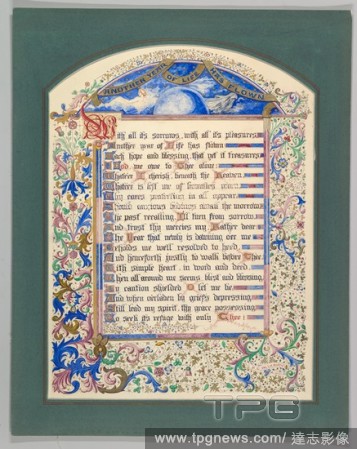 ANOTHER YEAR OF LIFE HAS FLOWN
With all its sorrows, with all its pleasures
Another year of Life has flown
Each hope and blessing, that yet it treasures
God we owe to Thee alone
I cherish beneath the Heaven
is left me of
cares in all appear
Would
The past recalling, I'll turn from sorrow
And trust thy mercies my Father dear
The Year that newly is dawning o'er me
me well resolved to heed
And henceforth justly to walk before Thee
With simple heart in word and deed
When all around me seems blest and blooming
By caution shielded O let me be
And when o'erladen by griefs depressing
Still lead my spirit, thy grace possessing
To seek its refuge with only Thee
TPG
www.tpgnews.com/ 達志影像